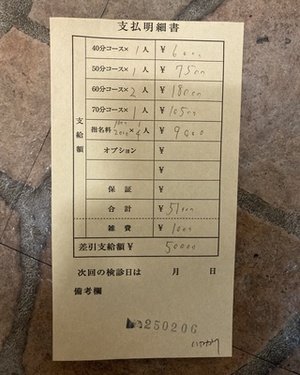 支払明細書
40分コース× 1 人 ¥ 6000
50分コース× 1 人 ¥ 7500
60分コース× 2 人 ¥ 18000
70分コース× 1 人 ¥ 10500
支給額
指名料 1000 2000 × 1 4 人 ¥ 9000
オプション ¥
¥
保証 ¥
合計 ¥ 51000
雑費 ¥ 1000
差引支給額 ¥ 50000
次回の検診日は 月 日
備考欄
250206